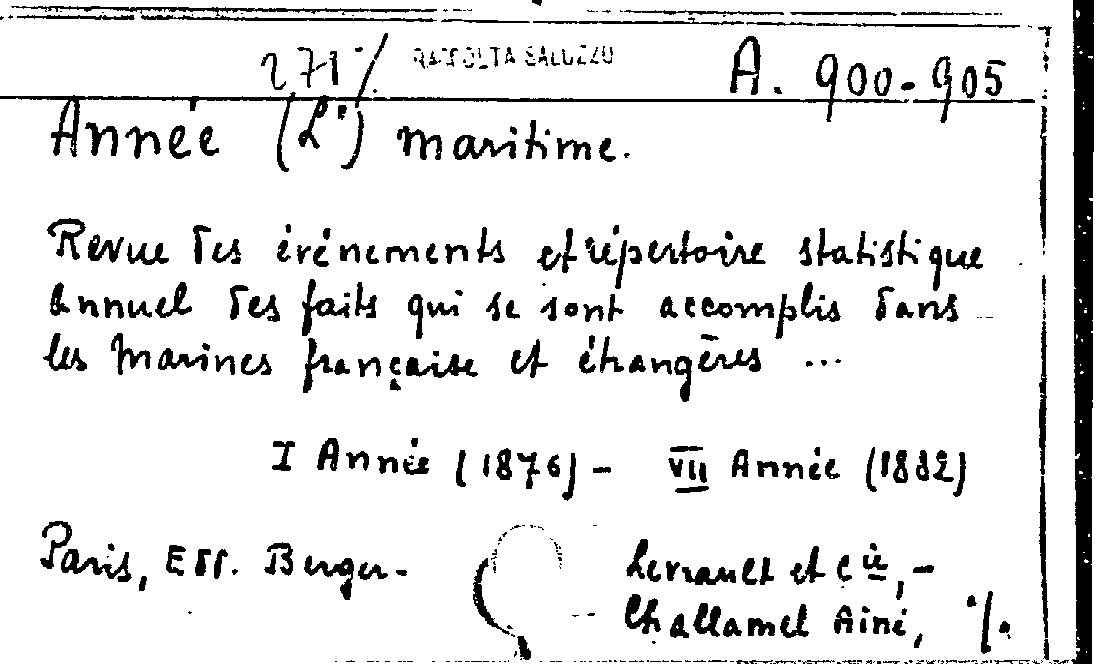 271 /. RACCOLTA SALUZZO A. 900-905
Année (L') maritime.
Revue des événements et répertoire statistique
annuel des faits qui se sont accomplis dans
les marines française et étrangères ...
I Année (1876) - VII Année (1882)
Paris, Edr. Berger- Levrault et Cie, -
Challamel Ainé, ./.